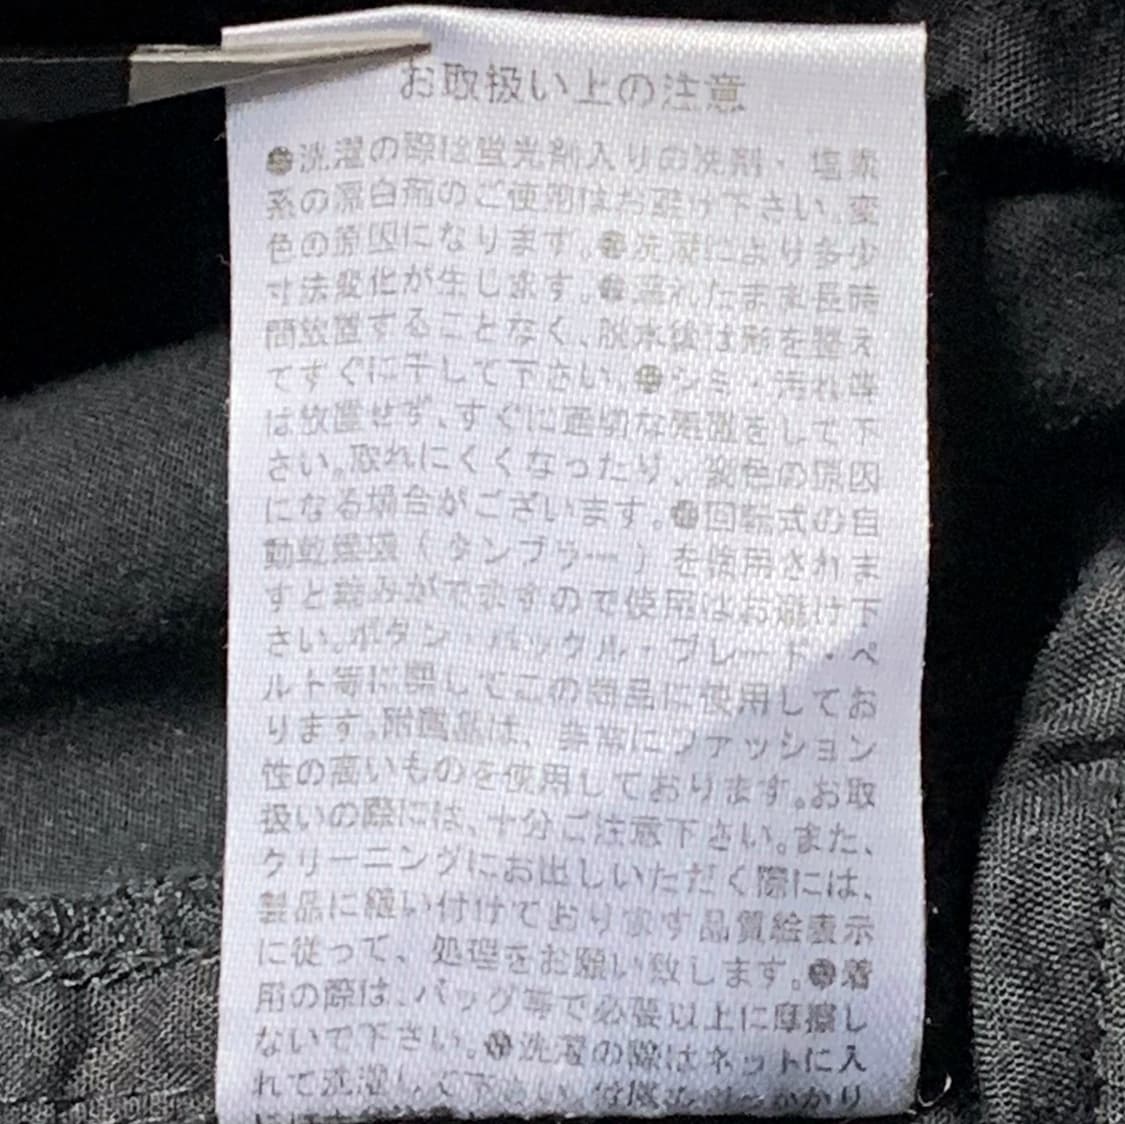 お取扱い上の注意
●洗濯の際は蛍光剤入りの洗剤・塩素
系の漂白剤のご使用はお避け下さい。変
色の原因になります。●洗濯により多少
寸法変化が生じます。●濡れたまま長時
間放置することなく、脱水後は形を整え
てすぐに干して下さい。●シミ・汚れ等
は放置せず、すぐに適切な処置をして下
さい。取れにくくなったり、変色の原因
になる場合がございます。●回転式の自
動乾燥機(タンブラー)を使用されま
すと縮みがでますので使用はお避け下
さい。ボタン・バックル・ブレード・ベ
ルト等に関してこの商品に使用してお
ります。附属品は、非常にファッション
性の高いものを使用しております。お取
扱いの際には、十分ご注意下さい。また、
クリーニングにお出しいただく際には、
製品に縫い付けております品質絵表示
に従って、処理をお願い致します。●着
用の際は、バッグ等で必要以上に摩擦し
ないで下さい。●洗濯の際はネットに入
れて洗濯して下さい。